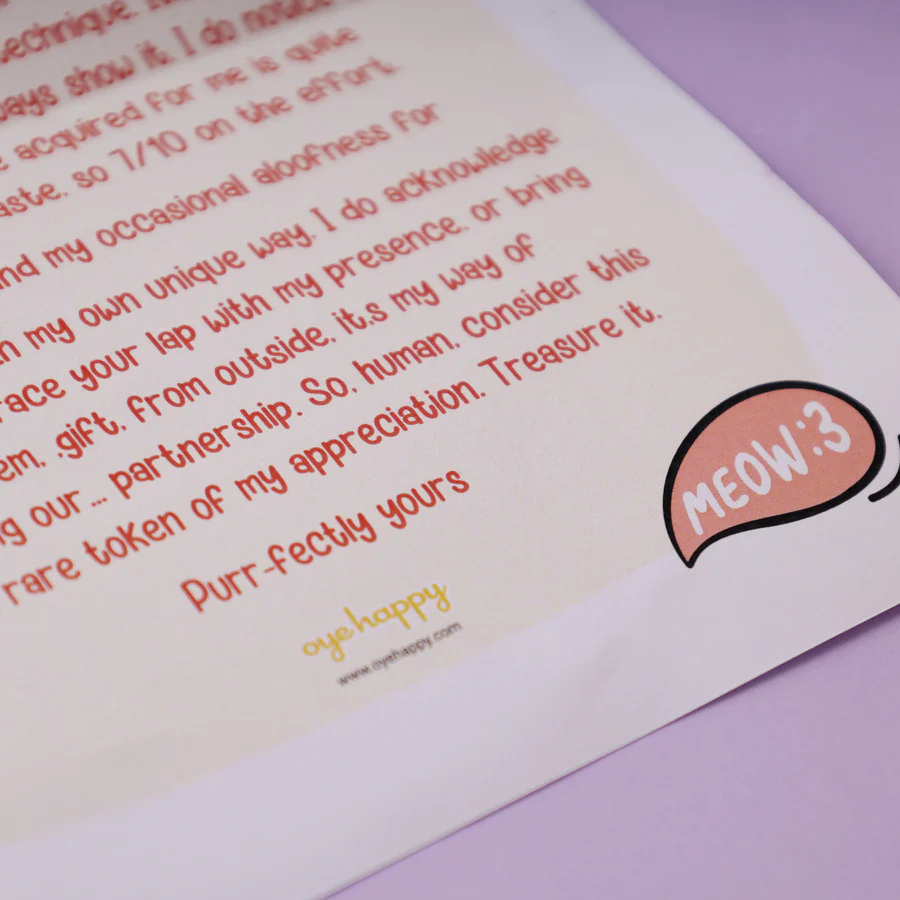 technique.
ways show it. I do notice
acquired for me is quite
taste. so 7/10 on the effort.
and my occasional aloofness for
in my own unique way. I do acknowledge
race your lap with my presence. or bring
em. .gift. from outside. it.s my way of
ng our... partnership. So. human. consider this
rare token of my appreciation. Treasure it.
Purr-fectly yours
oyehappy
www.oyehappy.com
MEOW:3